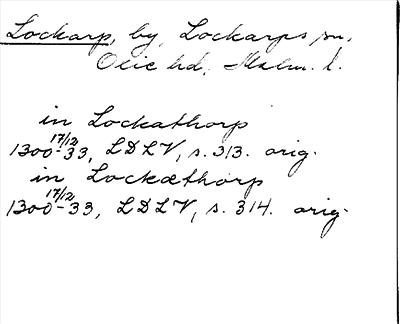 Lockarp, by, Lockarps sn,
Oxie hd, Malm. l.
in Lockathorp
1300 17/12 -33, LDLV, s. 313. orig.
in Lockæthorp
1300 17/12 -33, LDLV, s. 314. orig.